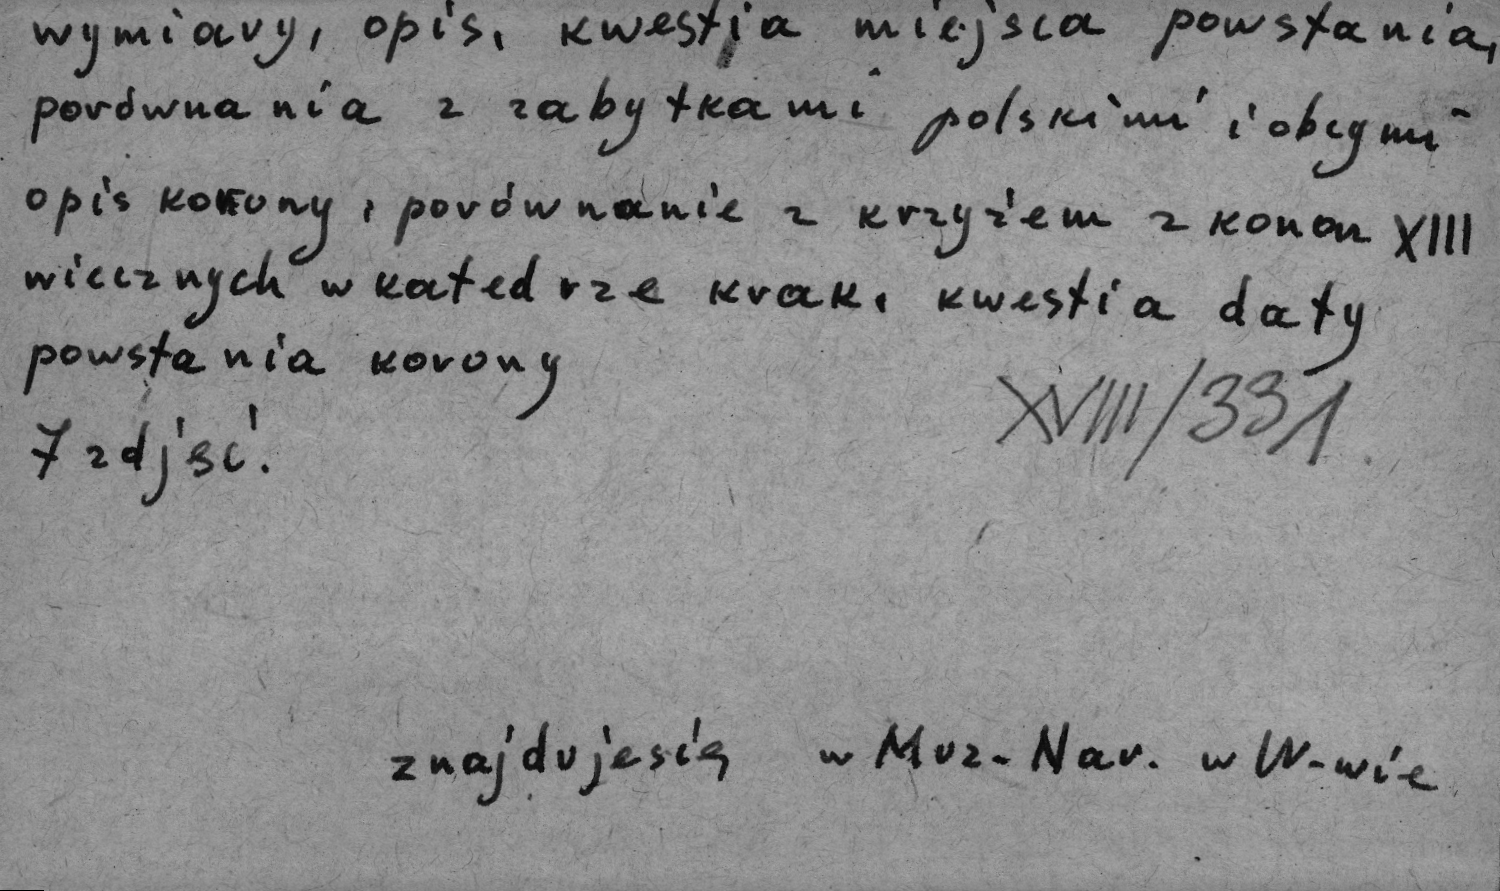 wymiary, opis, kwestia miejsca powstania,
porównania z zabytkami polskimi i obcymi
opis korony, porównanie z krzyżem z koron XIII
wiecznych w katedrze krak, kwestia daty
powstania korony
XVIII/331
7 zdjęć.
znajduje się w Muz. Nar. w W-wie